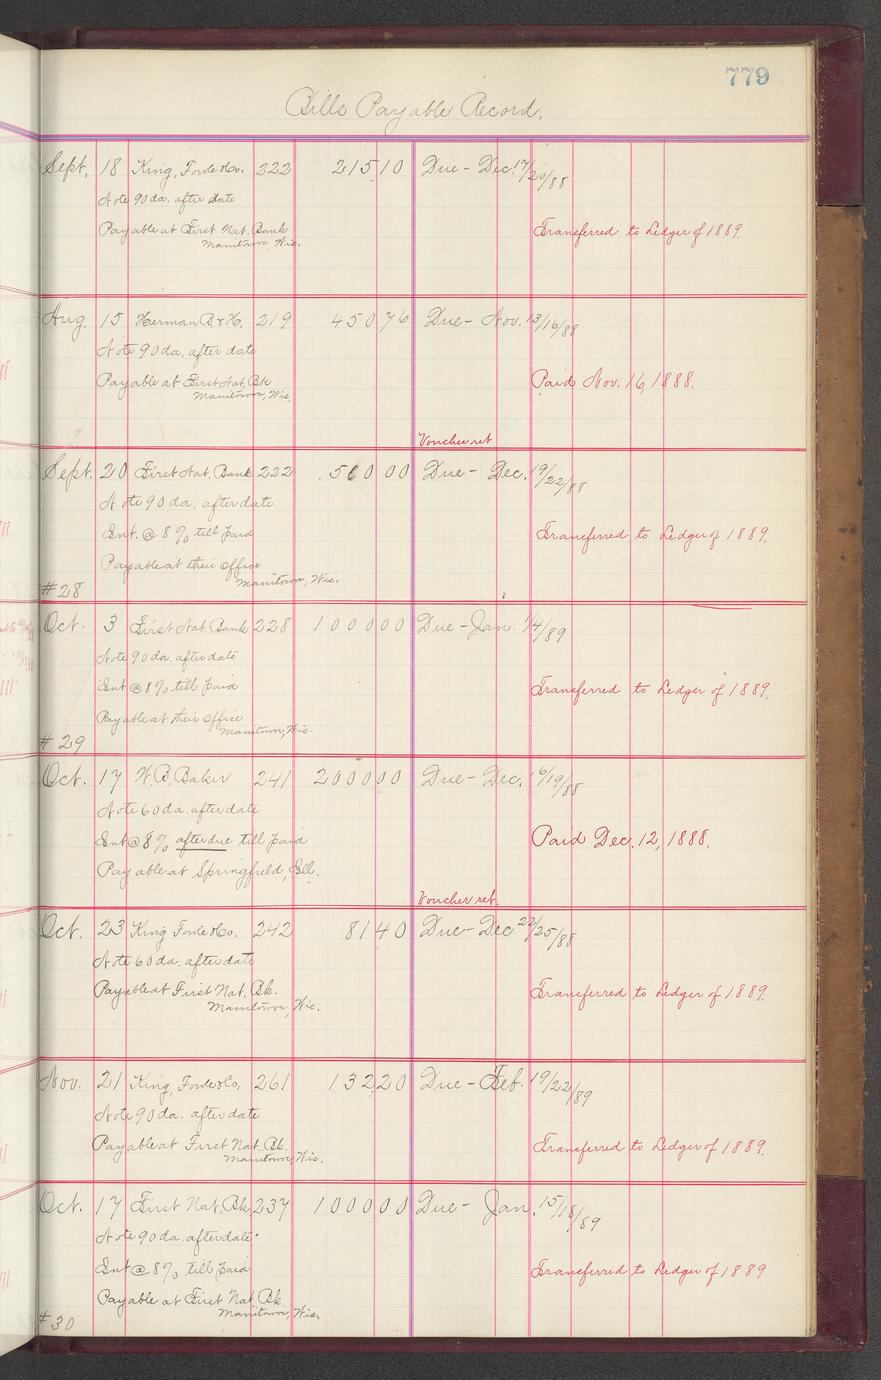 779
Bills Payable Record.
Sept. 18 King, Forde & Co. 222 215 10 Due - Dec. 17/20/88
Note 90 da. after date
Payable at First Nat. Bank
Manitowoc, Wis.
Transferred to Ledger of 1889.
Aug. 15 Herman B. & H. 219 450 76 Due - Nov. 13/16/88
Note 90 da. after date
Payable at First Nat. Bk
Manitowoc, Wis.
Paid Nov. 16, 1888.
Voucher ret
Sept. 20 First Nat. Bank 222 500 00 Due - Dec. 19/22/88
Note 90 da. after date
Int. @ 8% till paid
Transferred to Ledger of 1889.
Payable at their office
Manitowoc, Wis.
#28
Oct. 3 First Nat. Bank 228 1000 00 Due - Jan. 1/4/89
Note 90 da. after date
Int @ 8% till paid
Transferred to Ledger of 1889.
Payable at their office
Manitowoc, Wis.
#29
Oct. 17 W. B. Baker 241 2000 00 Due - Dec. 16/19/88
Note 60 da. after date
Int @ 8% after due till paid
Paid Dec. 12, 1888.
Payable at Springfield, Ill.
Voucher ret.
Oct. 23 King Forde & Co. 242 81 40 Due - Dec 22/25/88
Note 60 da. after date
Payable at First Nat. Bk.
Manitowoc, Wis.
Transferred to Ledger of 1889.
Nov. 21 King, Forde & Co, 261 132 20 Due - Feb. 19/22/89
Note 90 da. after date
Payable at First Nat. Bk.
Manitowoc, Wis.
Transferred to Ledger of 1889.
Oct. 17 First Nat. Bk 237 1000 00 Due - Jan. 15/18/89
Note 90 da. after date
Int @ 8% till paid
Transferred to Ledger of 1889
Payable at First Nat. Bk.
Manitowoc, Wis.
#30